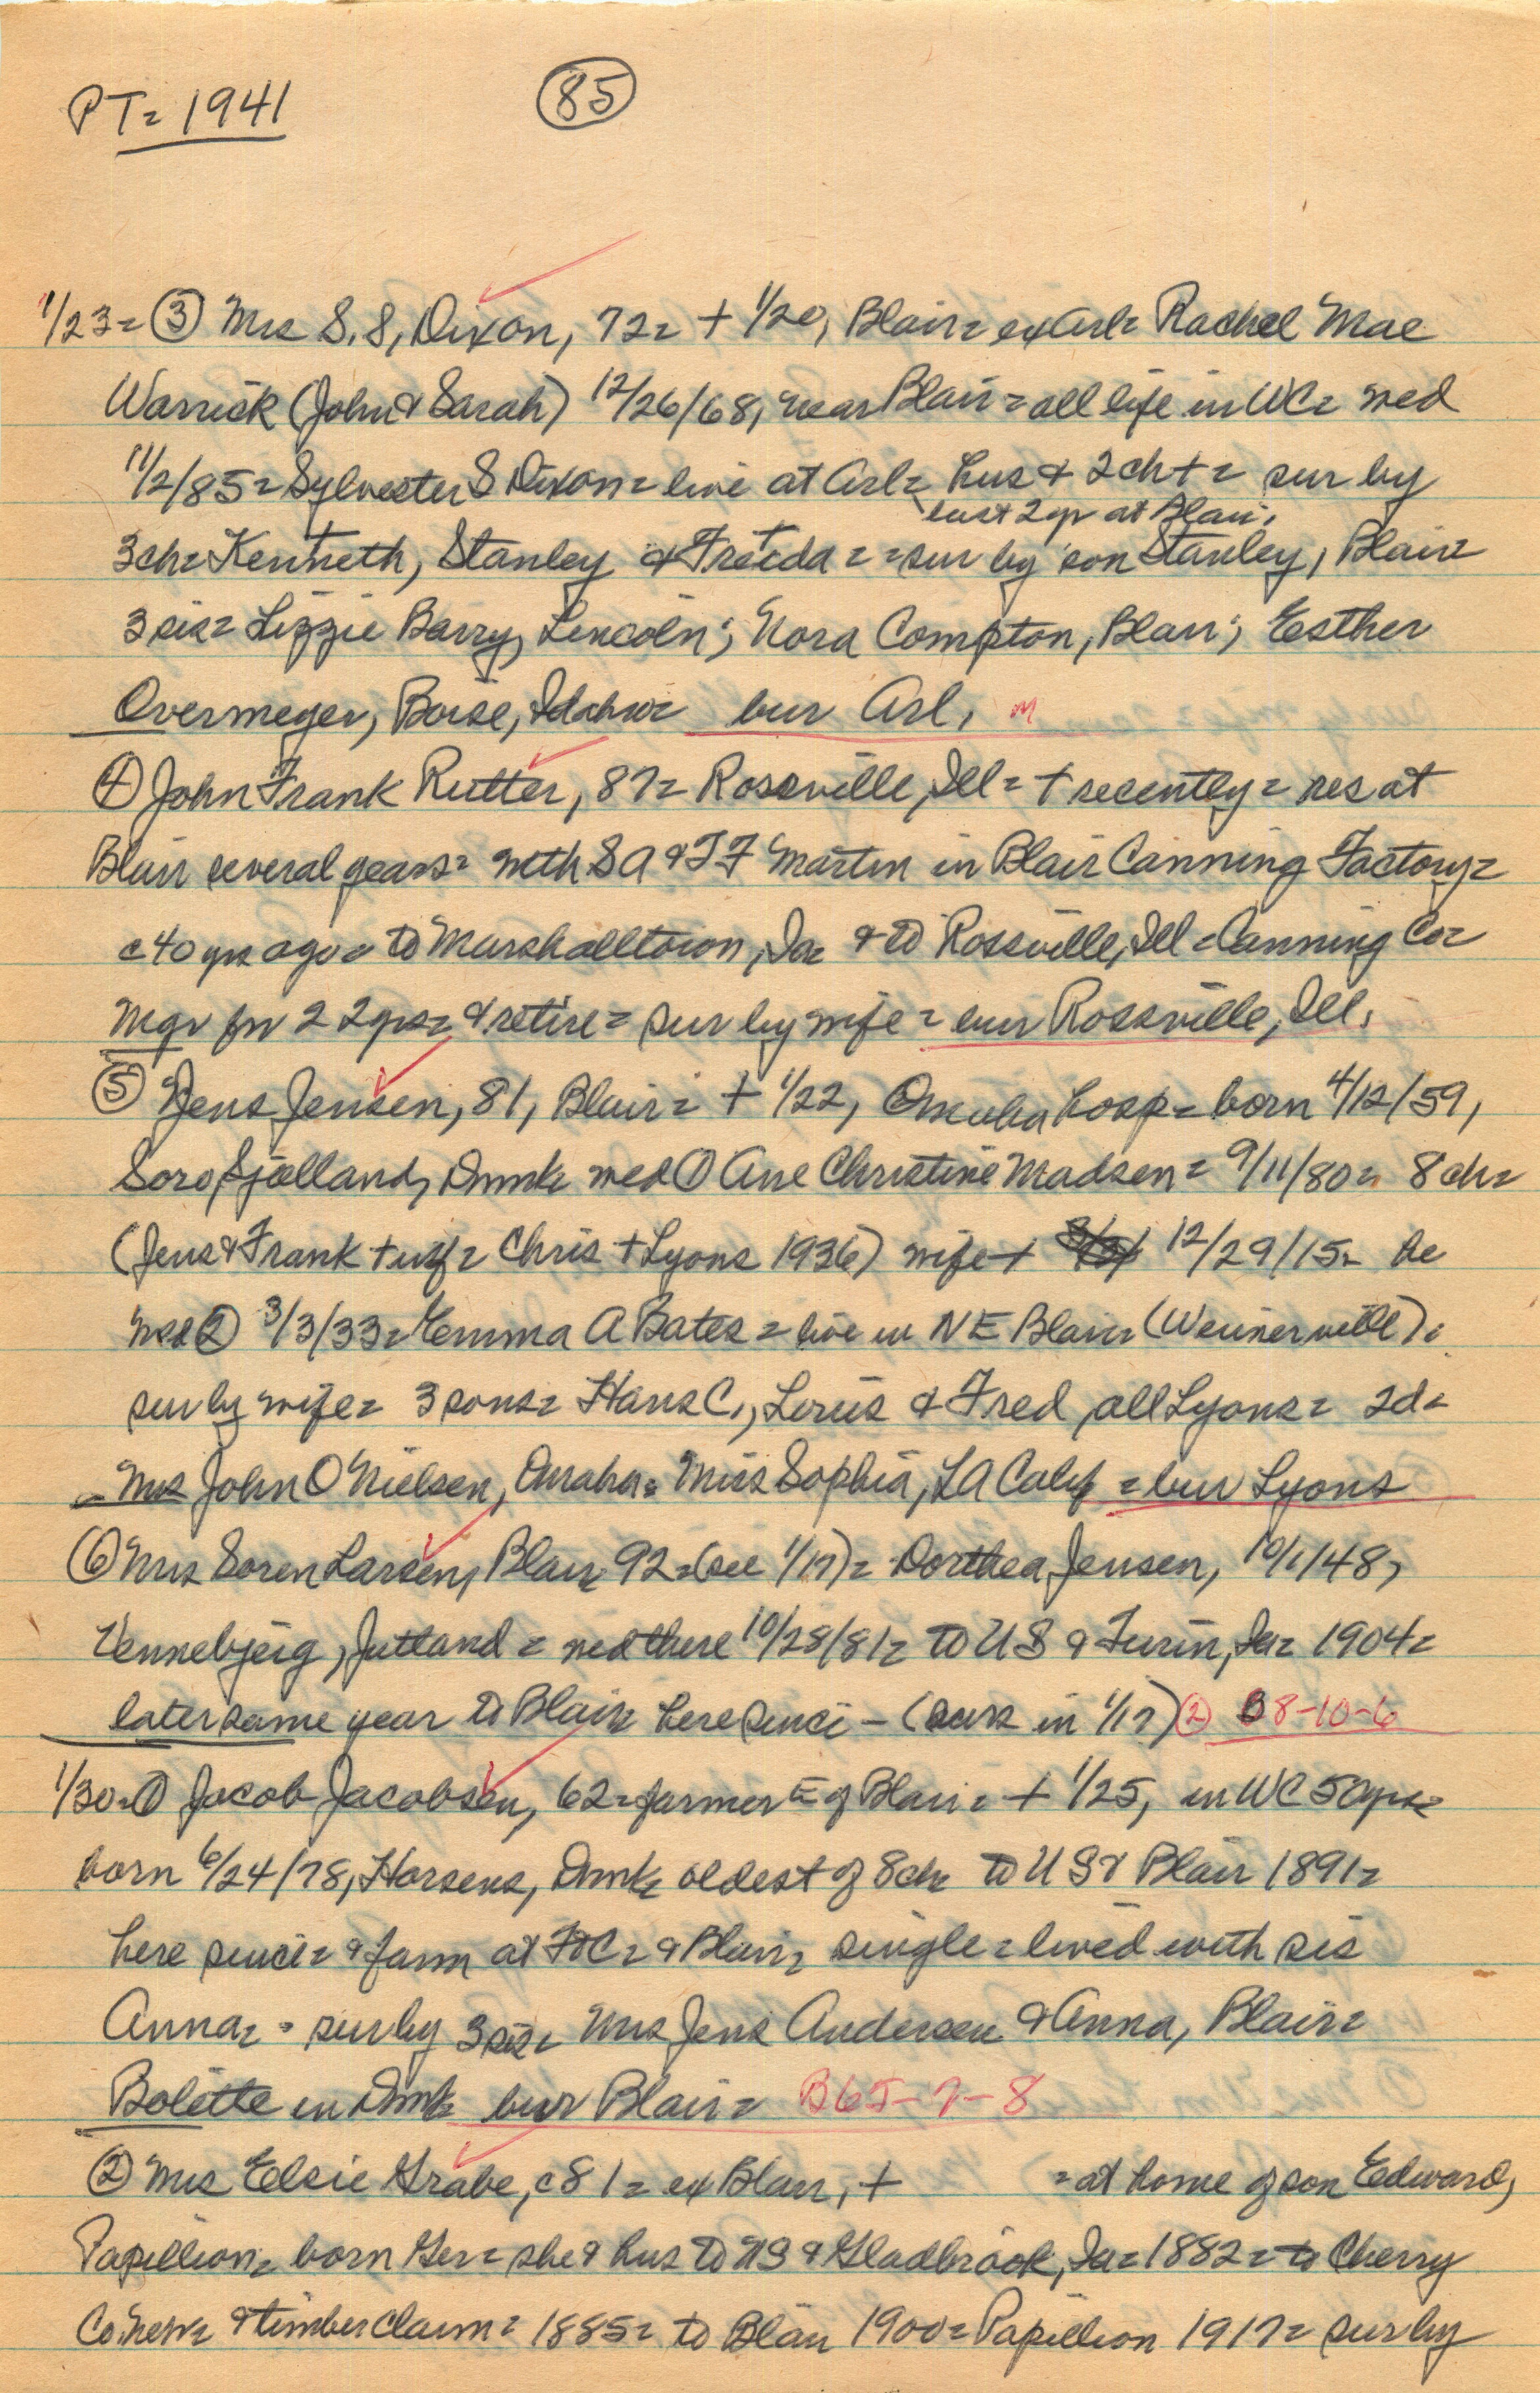 PT= 1941
85
1/23= ③ Mrs S.S. Dixon, 72= + 1/20, Blair= ex Arl= Rachel Mae
Warrick (John & Sarah) 12/26/68, near Blair= all life in WC= med
11/2/85= Sylvester S Dixon= live at Arl= hus & 2ch += sur by
last 2 yr at Blair.
3ch= Kenneth, Stanley & Freeda = =sur by son Stanley, Blair=
3 sis= Lizzie Barry, Lincoln; Nora Compton, Blair; Esther
Overmeyer, Boise, Idaho= bur Arl. M
④ John Frank Rutter, 87= Rossville, Ill= + recently= res at
Blair several years= with SA & TF Martin in Blair Canning Factory=
c 40 yrs ago= to Marshalltown, Ia= & to Rossville, Ill= Canning Co=
Mgr for 22 yrs= & retire= sur by wife= bur Rossville, Ill.
⑤ Jens Jensen, 81, Blair= + 1/22, Omaha hosp= born 4/12/59,
Soro, Sjælland, Dnmk= med ① Ane Christine Madsen= 9/11/80= 8 ch=
(Jens & Frank + inf= Chris + Lyons 1936) wife + 12/29/15= he
med ② 3/3/33= Emma A Bates= live in NE Blair= (Weinerville)=
sur by wife= 3 sons= Hans C., Louis & Fred, all Lyons= 2d=
Mrs John O Nielsen, Omaha= Miss Sophia, LA Calif= bur Lyons
⑥ Mrs Soren Larsen, Blair, 92= (see 1/17)= Dorthea Jensen, 10/1/48,
Vennebjerg, Jutland= med there 10/28/81= to US & Turin, Ia= 1904=
later same year to Blair= here since - (surs in 1/17) ② B8-10-6
1/30= ① Jacob Jacobsen, 62= farmer E of Blair= + 1/25, in WC 50 yrs=
born 6/24/78, Horsens, Dnmk= oldest of 8ch= to US & Blair 1891=
here since= & farm at FtC= & Blair= single= lived with sis
Anna= = sur by 3 sis= Mrs Jens Andersen & Anna, Blair=
Bolette in Dnmk= bur Blair= B65-7-8
② Mrs Elsie Grabe, c81= ex Blair, + =at home of son Edward,
Papillion= born Ger= she & hus to US & Gladbrook, Ia= 1882= to Cherry
Co. Nebr= & timber claim= 1885= to Blair 1900= Papillion 1917= sur by